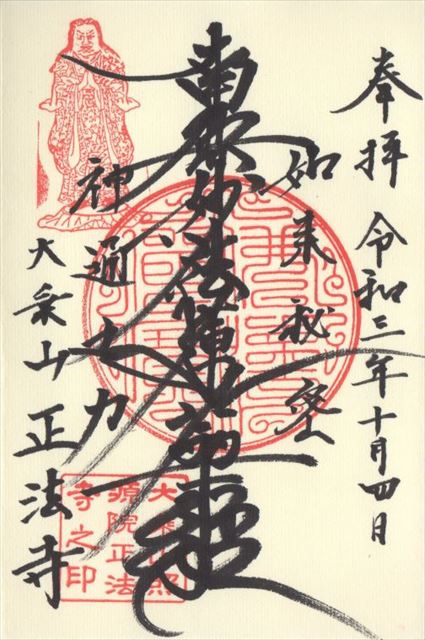 奉拝 令和三年十月四日
如来秘密
南無妙法蓮華経
神通之力
大乗山 正法寺
寺之印
源院正法